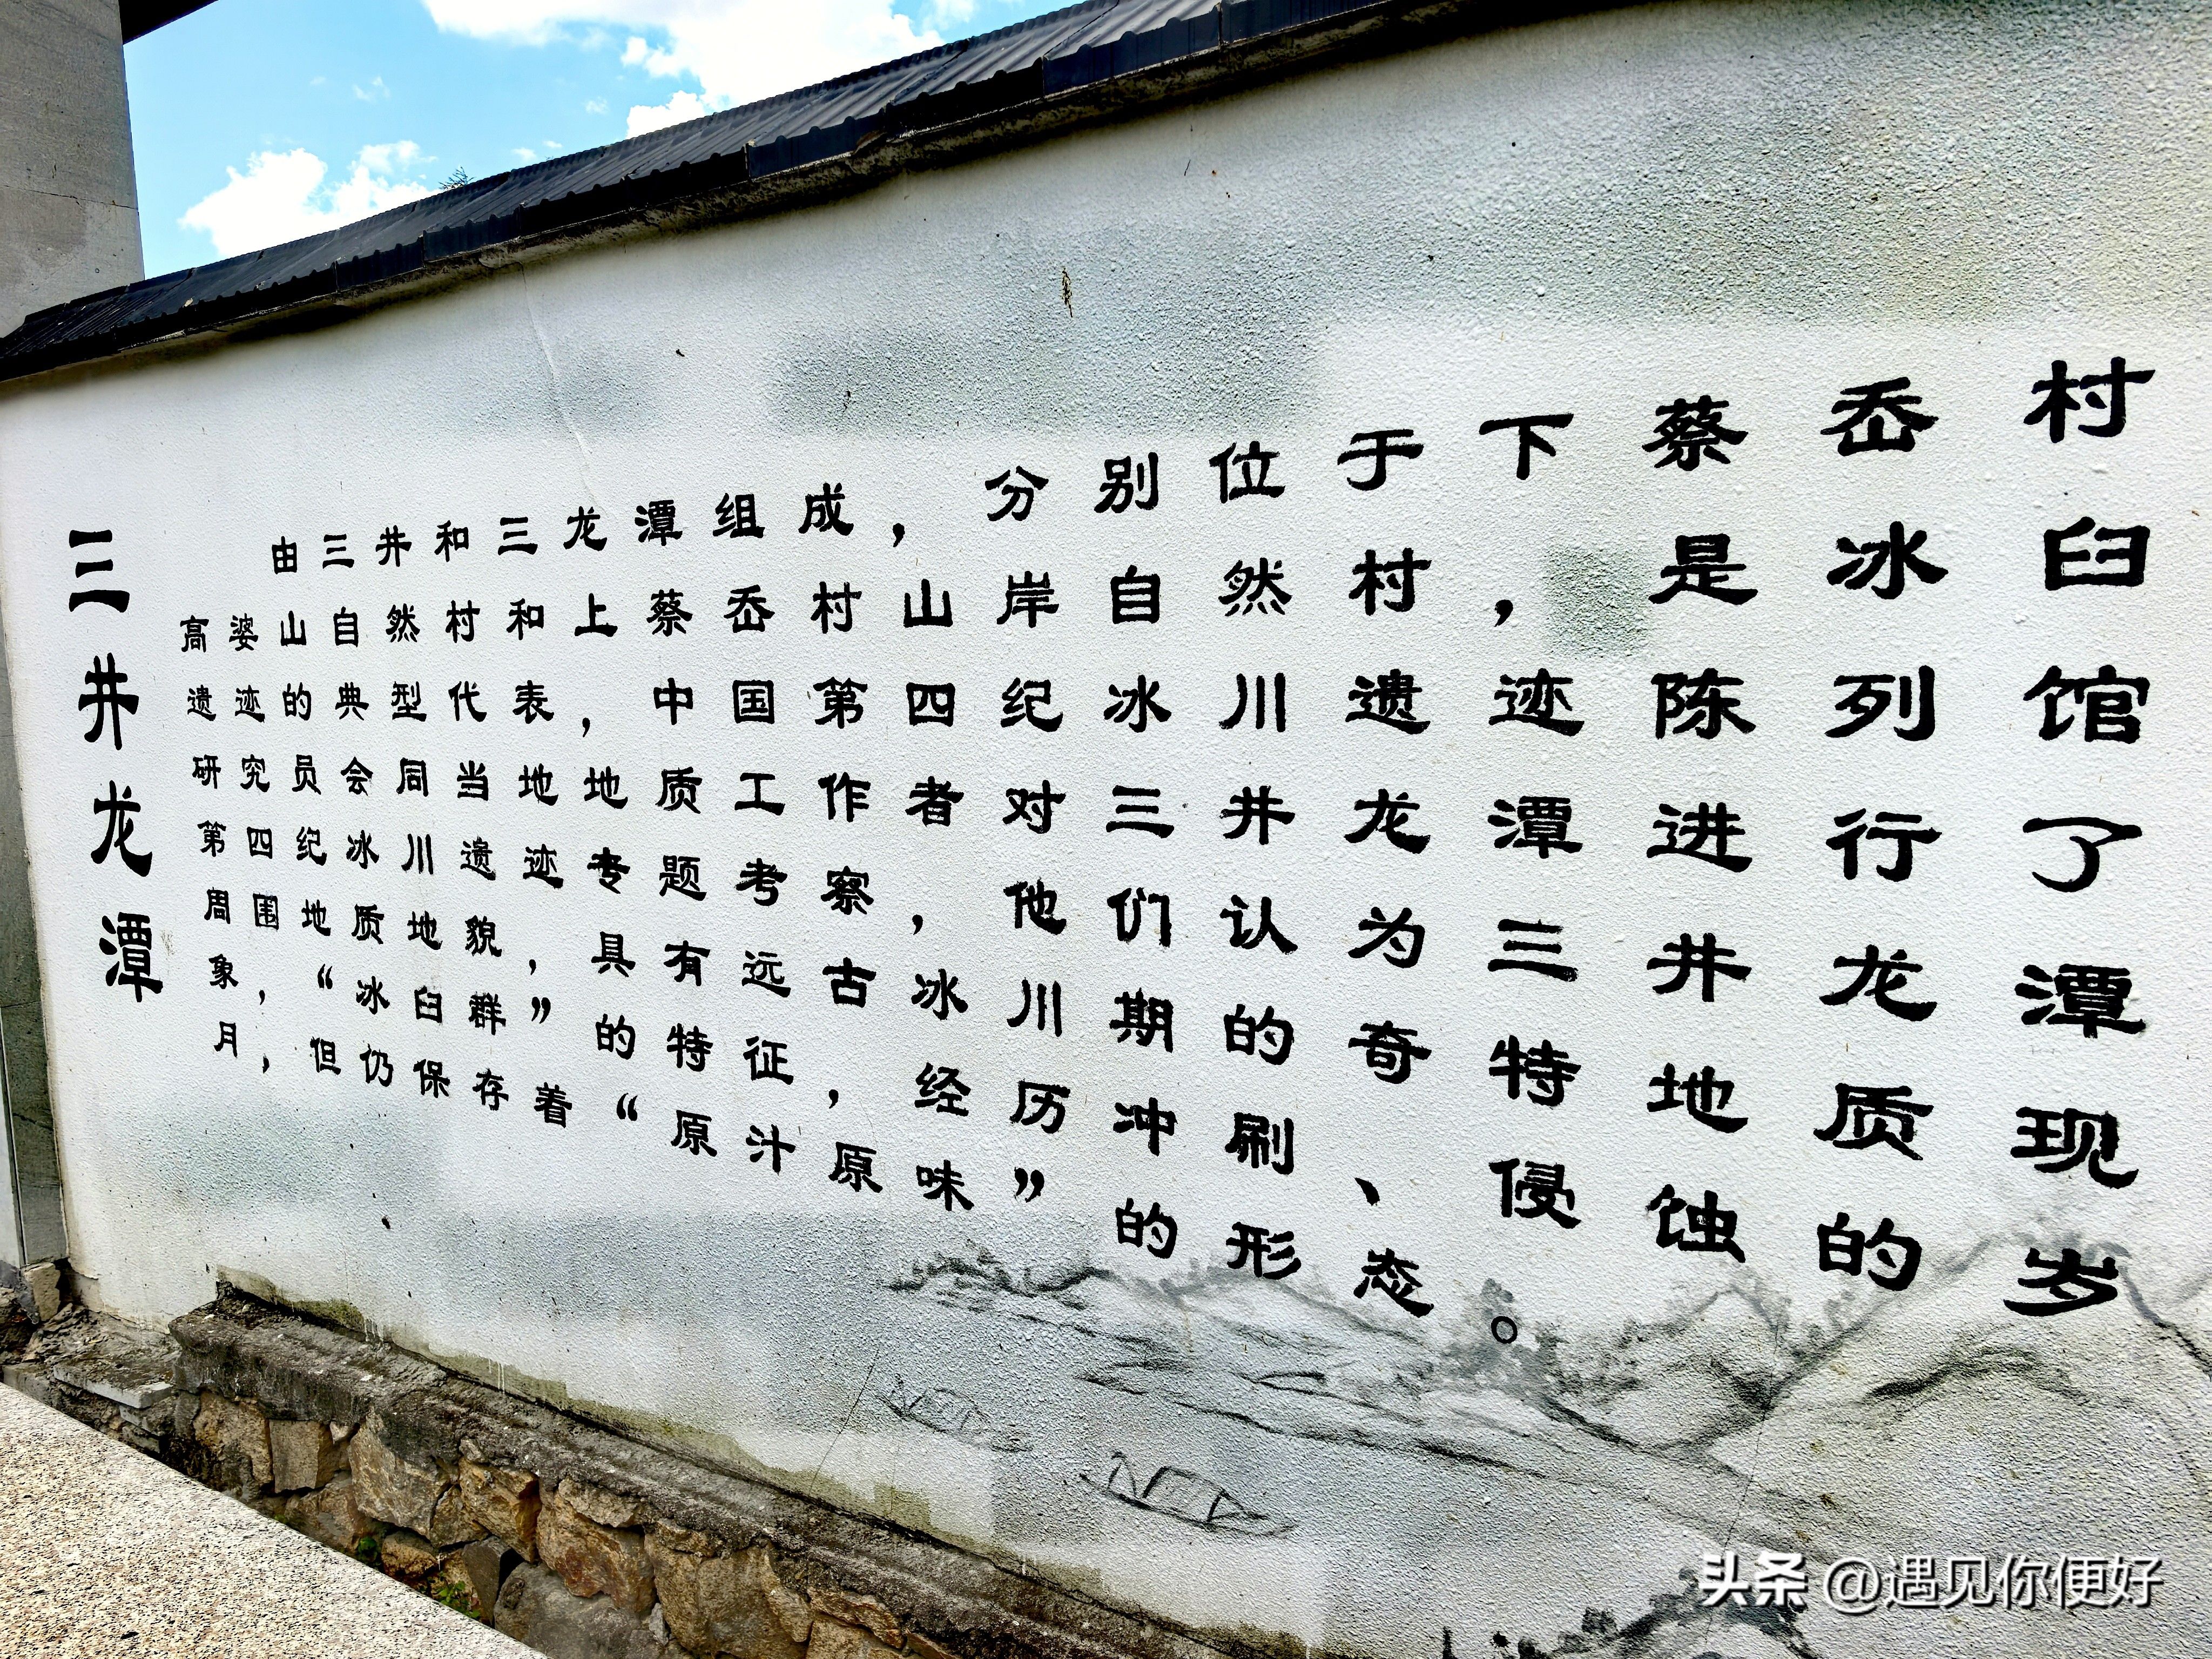 三井龙潭
由三井和三龙潭组成，分别位于下蔡岙村
高婆山自然村和上蔡岙村山岸自然村，是冰臼
遗迹的典型代表，中国第四纪冰川遗迹陈列馆
研究员会同当地地质工作者对三井龙潭进行了
第四纪冰川遗迹专题考察，他们认为三井龙潭
周围地质地貌，具有远古冰川期的奇特地质现
象，“冰臼群”的特征，经历冲刷、侵蚀的岁
月，但仍保存着“原汁原味”的形态。
头条 @遇见你便好